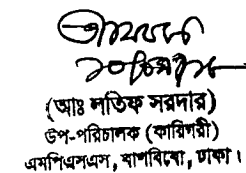 (আঃ লতিফ সরদার)
উপ-পরিচালক (কারিগরী)
এমপিএসএস, বাপবিবো, ঢাকা।